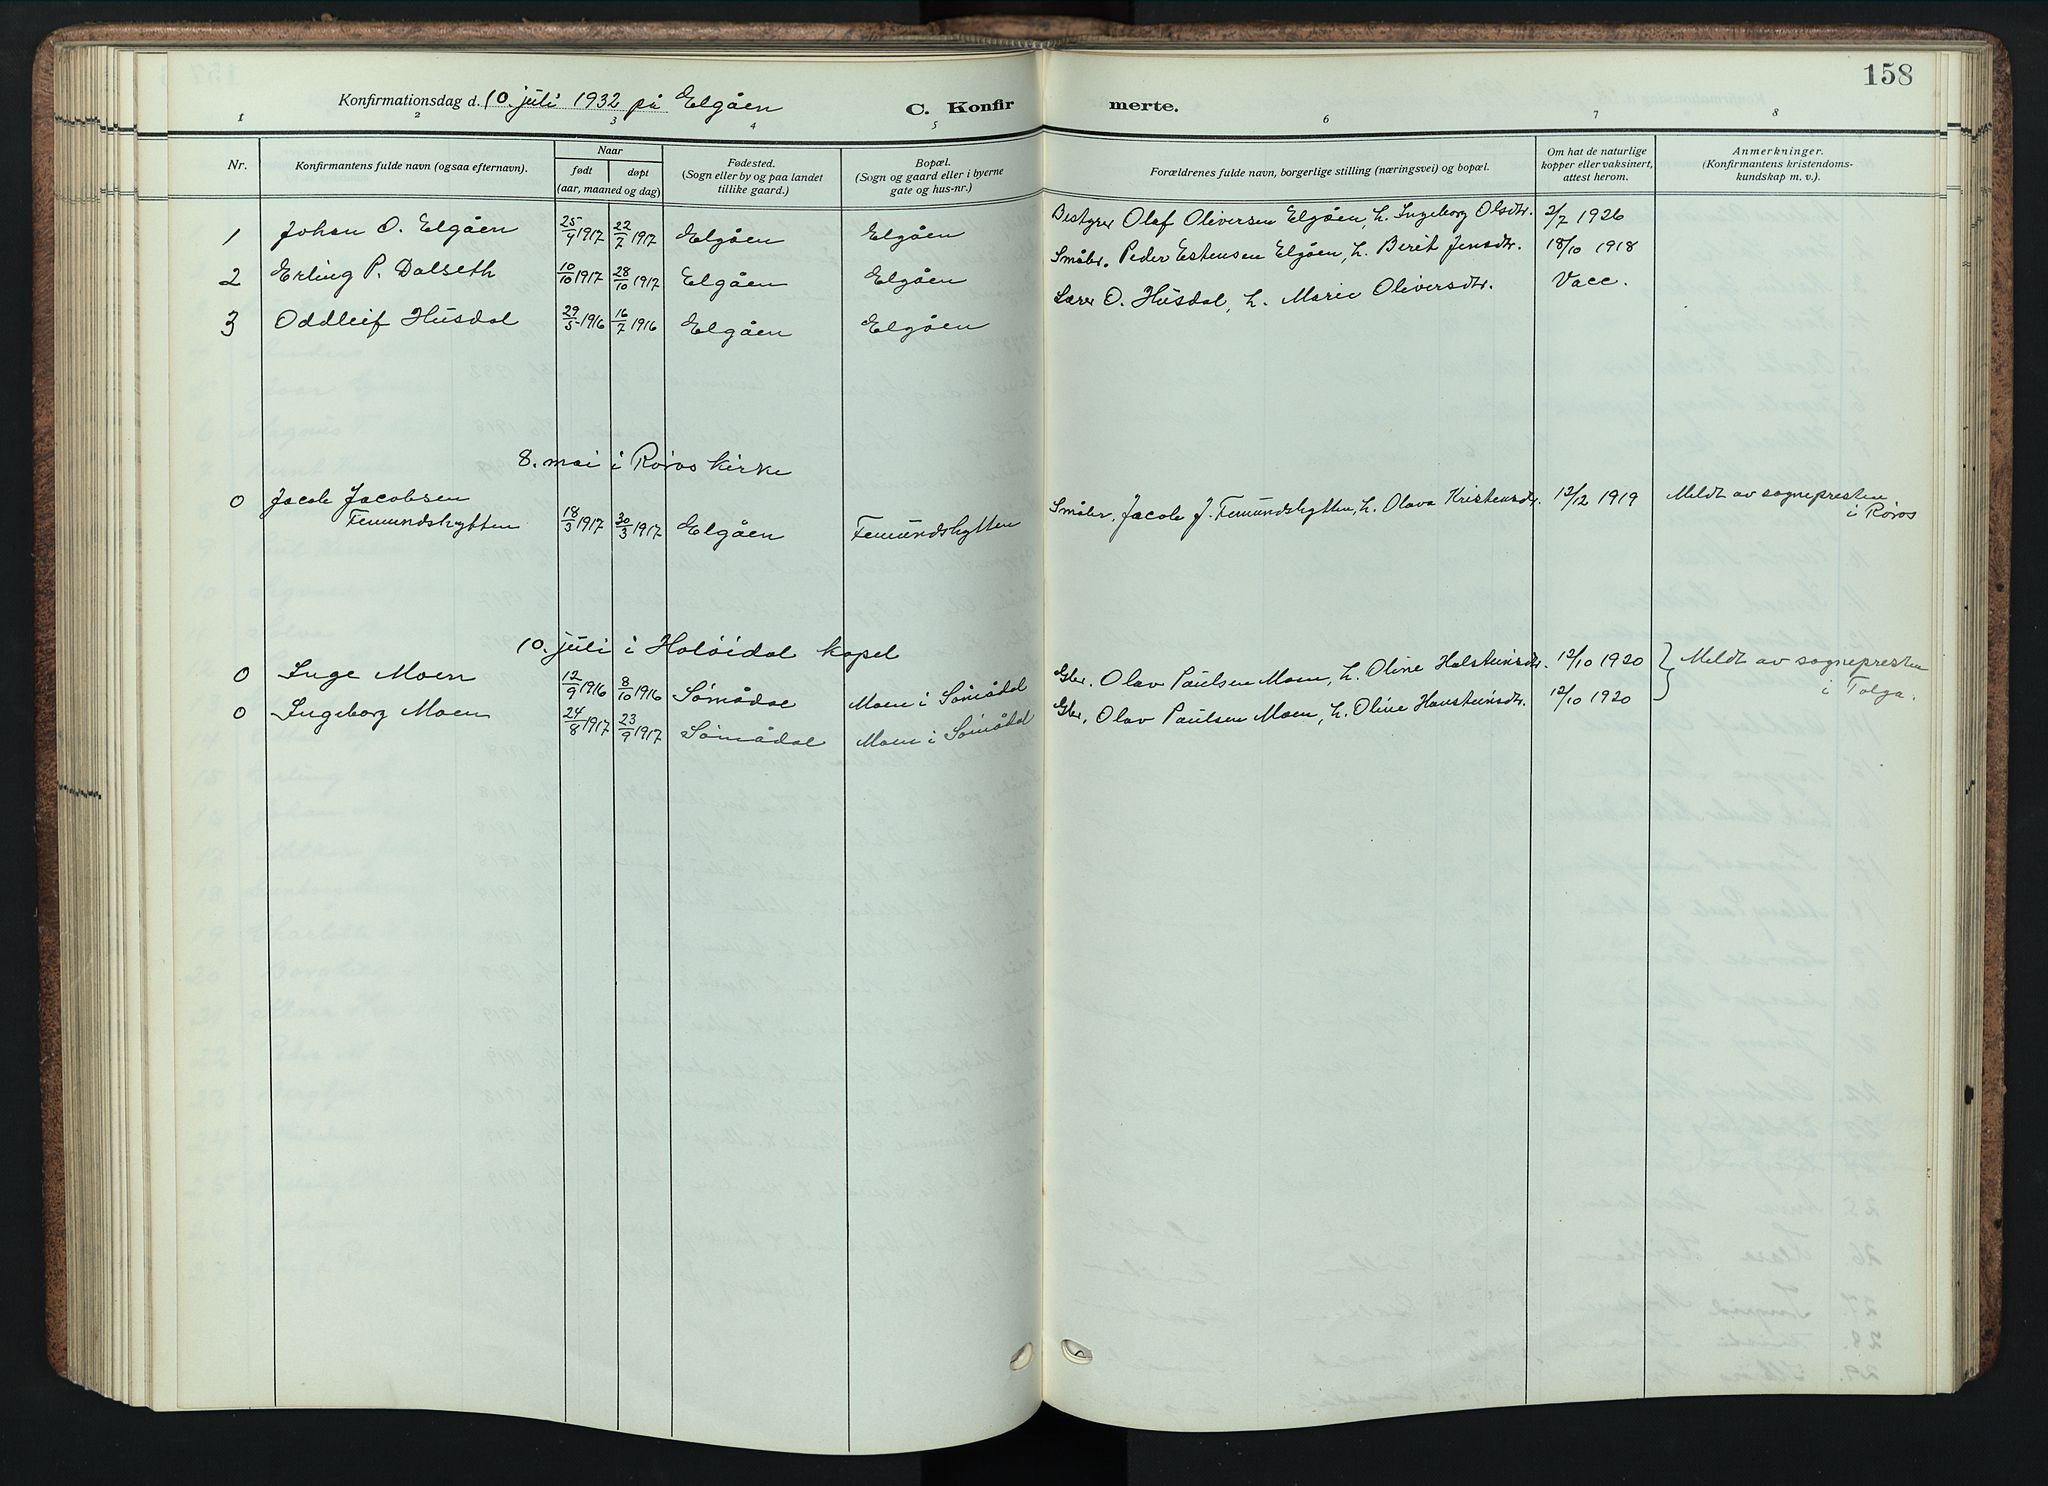 158
Konfirmationsdag d. 10. juli 1932 på Elgåen C. Konfirmerte.
1 2 3 4 5 6 7 8
Nr. Konfirmantens fulde navn (ogsaa efternavn). Naar født døpt (aar, maaned og dag) Fødested. (Sogn eller by og paa landet tillike gaard.) Bopæl. (Sogn og gaard eller i byerne gate og hus-nr.) Forældrenes fulde navn, borgerlige stilling (næringsvei) og bopæl. Om hat de naturlige kopper eller vaksinert, attest herom. Anmerkninger. (Konfirmantens kristendomskundskap m. v.).
1 Johan O. Elgåen 25/4 1917 22/7 1917 Elgåen Elgåen Bestyrer Olaf Oliversen Elgåen, h. Ingeborg Olsdtr. 2/7 1926
2 Erling P. Dalseth 10/10 1917 28/10 1917 Elgåen Elgåen Småbr. Peder Estensen Elgåen, h. Berit Jensdtr. 18/10 1918
3 Oddleif Husdal 29/5 1916 16/7 1916 Elgåen Elgåen Lærer O. Husdal, h. Marie Oliversdtr. Vacc.
8. mai i Røros kirke
0 Jacob Jacobsen
Femundshytten 18/3 1917 30/3 1917 Elgåen Femundshytten Småbr. Jacob J. Femundshytten, h. Olava Kristensdtr. 12/12 1919 Meldt av sognepresten
i Røros
10. juli i Holøidal kapel
0 Inge Moen 12/9 1916 8/10 1916 Sømådal Moen i Sømådal Gbr. Olav Paulsen Moen, h. Oline Halsteinsdtr. 12/10 1920 } Meldt av sognepresten
i Tolga.
0 Ingeborg Moen 24/8 1917 23/9 1917 Sømådal Moen i Sømådal Gbr. Olav Paulsen Moen, h. Oline Hansteinsdtr. 12/10 1920